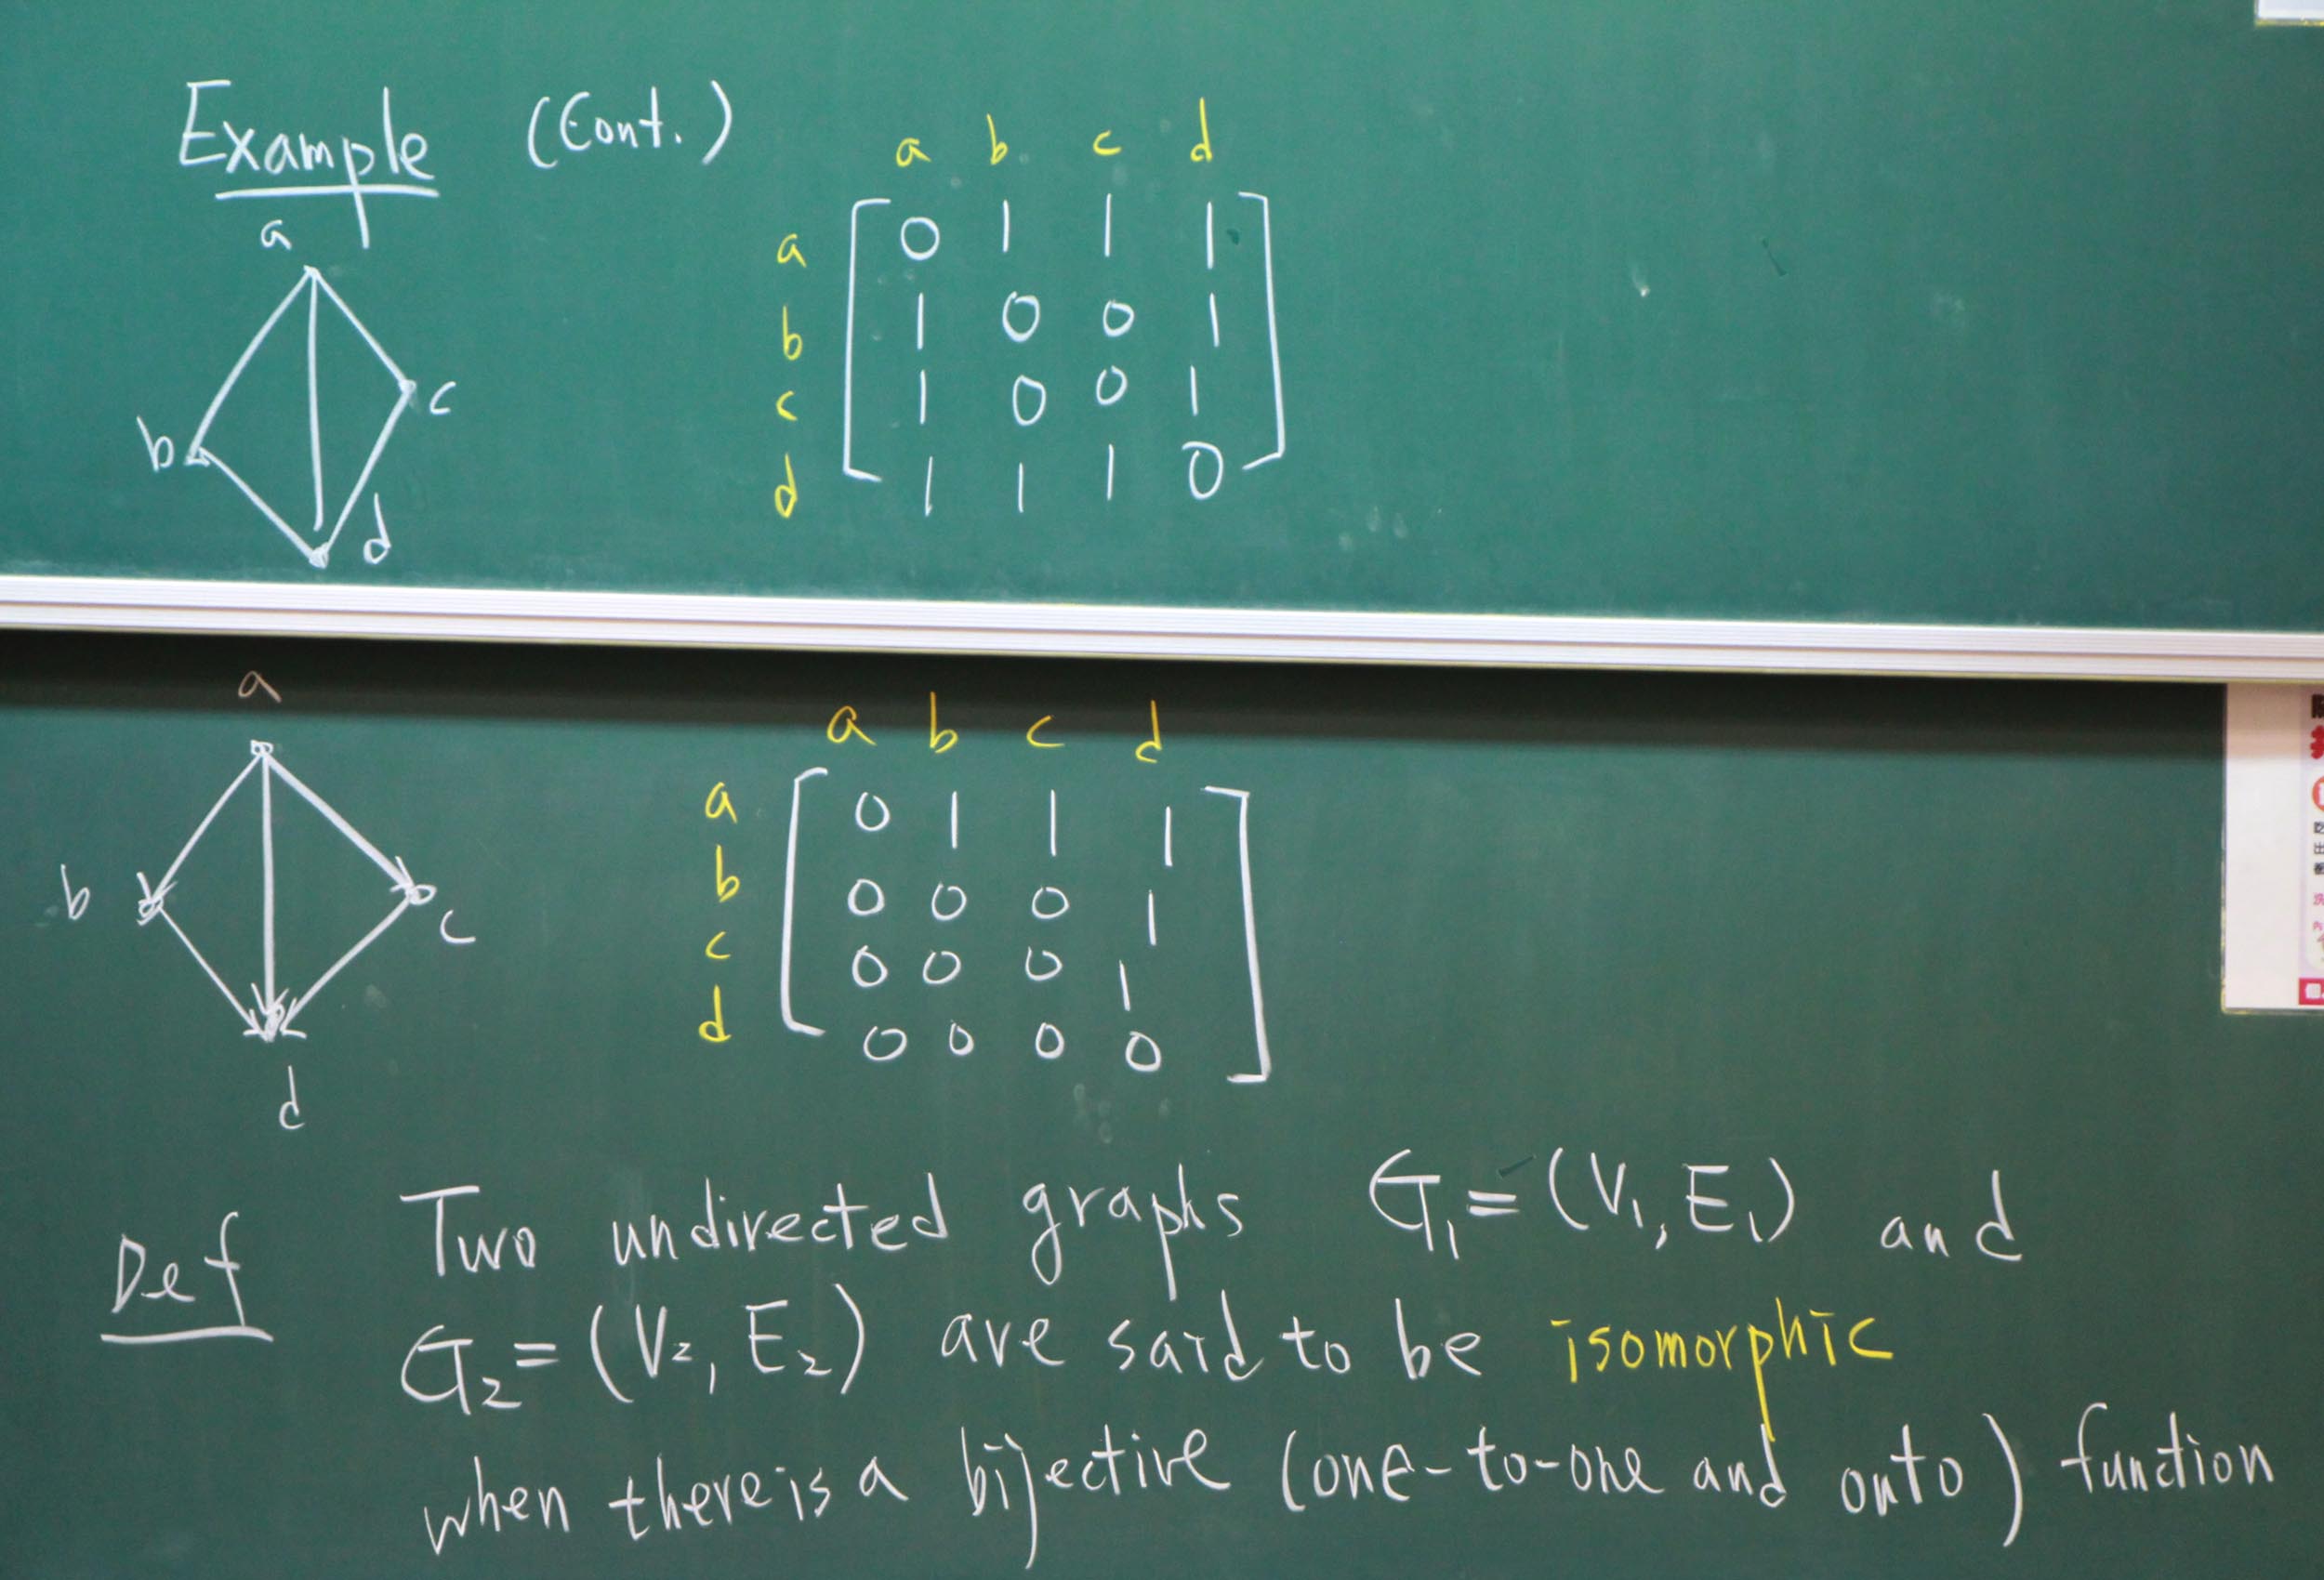 Example (Cont.)
a
b
c
d
a b c d
a 0 1 1 1
b 1 0 0 1
c 1 0 0 1
d 1 1 1 0
a
b
c
d
a b c d
a 0 1 1 1
b 0 0 0 1
c 0 0 0 1
d 0 0 0 0
Def Two undirected graphs G₁ = (V₁, E₁) and
G₂ = (V₂, E₂) are said to be isomorphic
when there is a bijective (one-to-one and onto) function